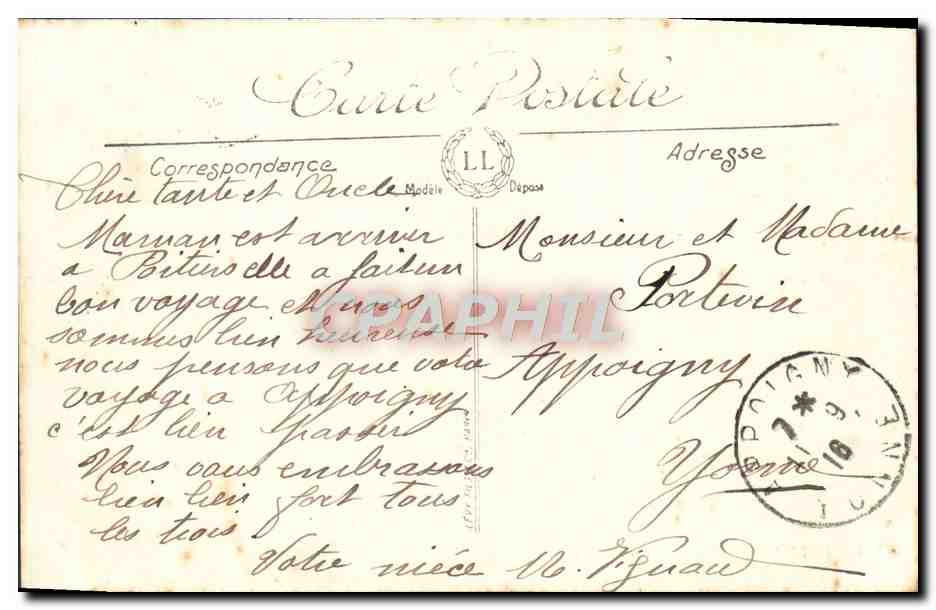 Carte Postale
Correspondance
LL
Adresse
Modèle Déposé
Chère tante et Oncle
Maman est arriver
a Poitiers elle a fait un
bon voyage et nous
sommes bien heureuse
nous pensons que votre
voyage a Appoigny
c'est bien passer
Nous vous embrassons
bien bien fort tous
les trois
Votre nièce M. Vignaud
Monsieur et Madame
Potevin
Appoigny
Yonne
APPOIGNY
YONNE
* 9
16
CPAPHIL